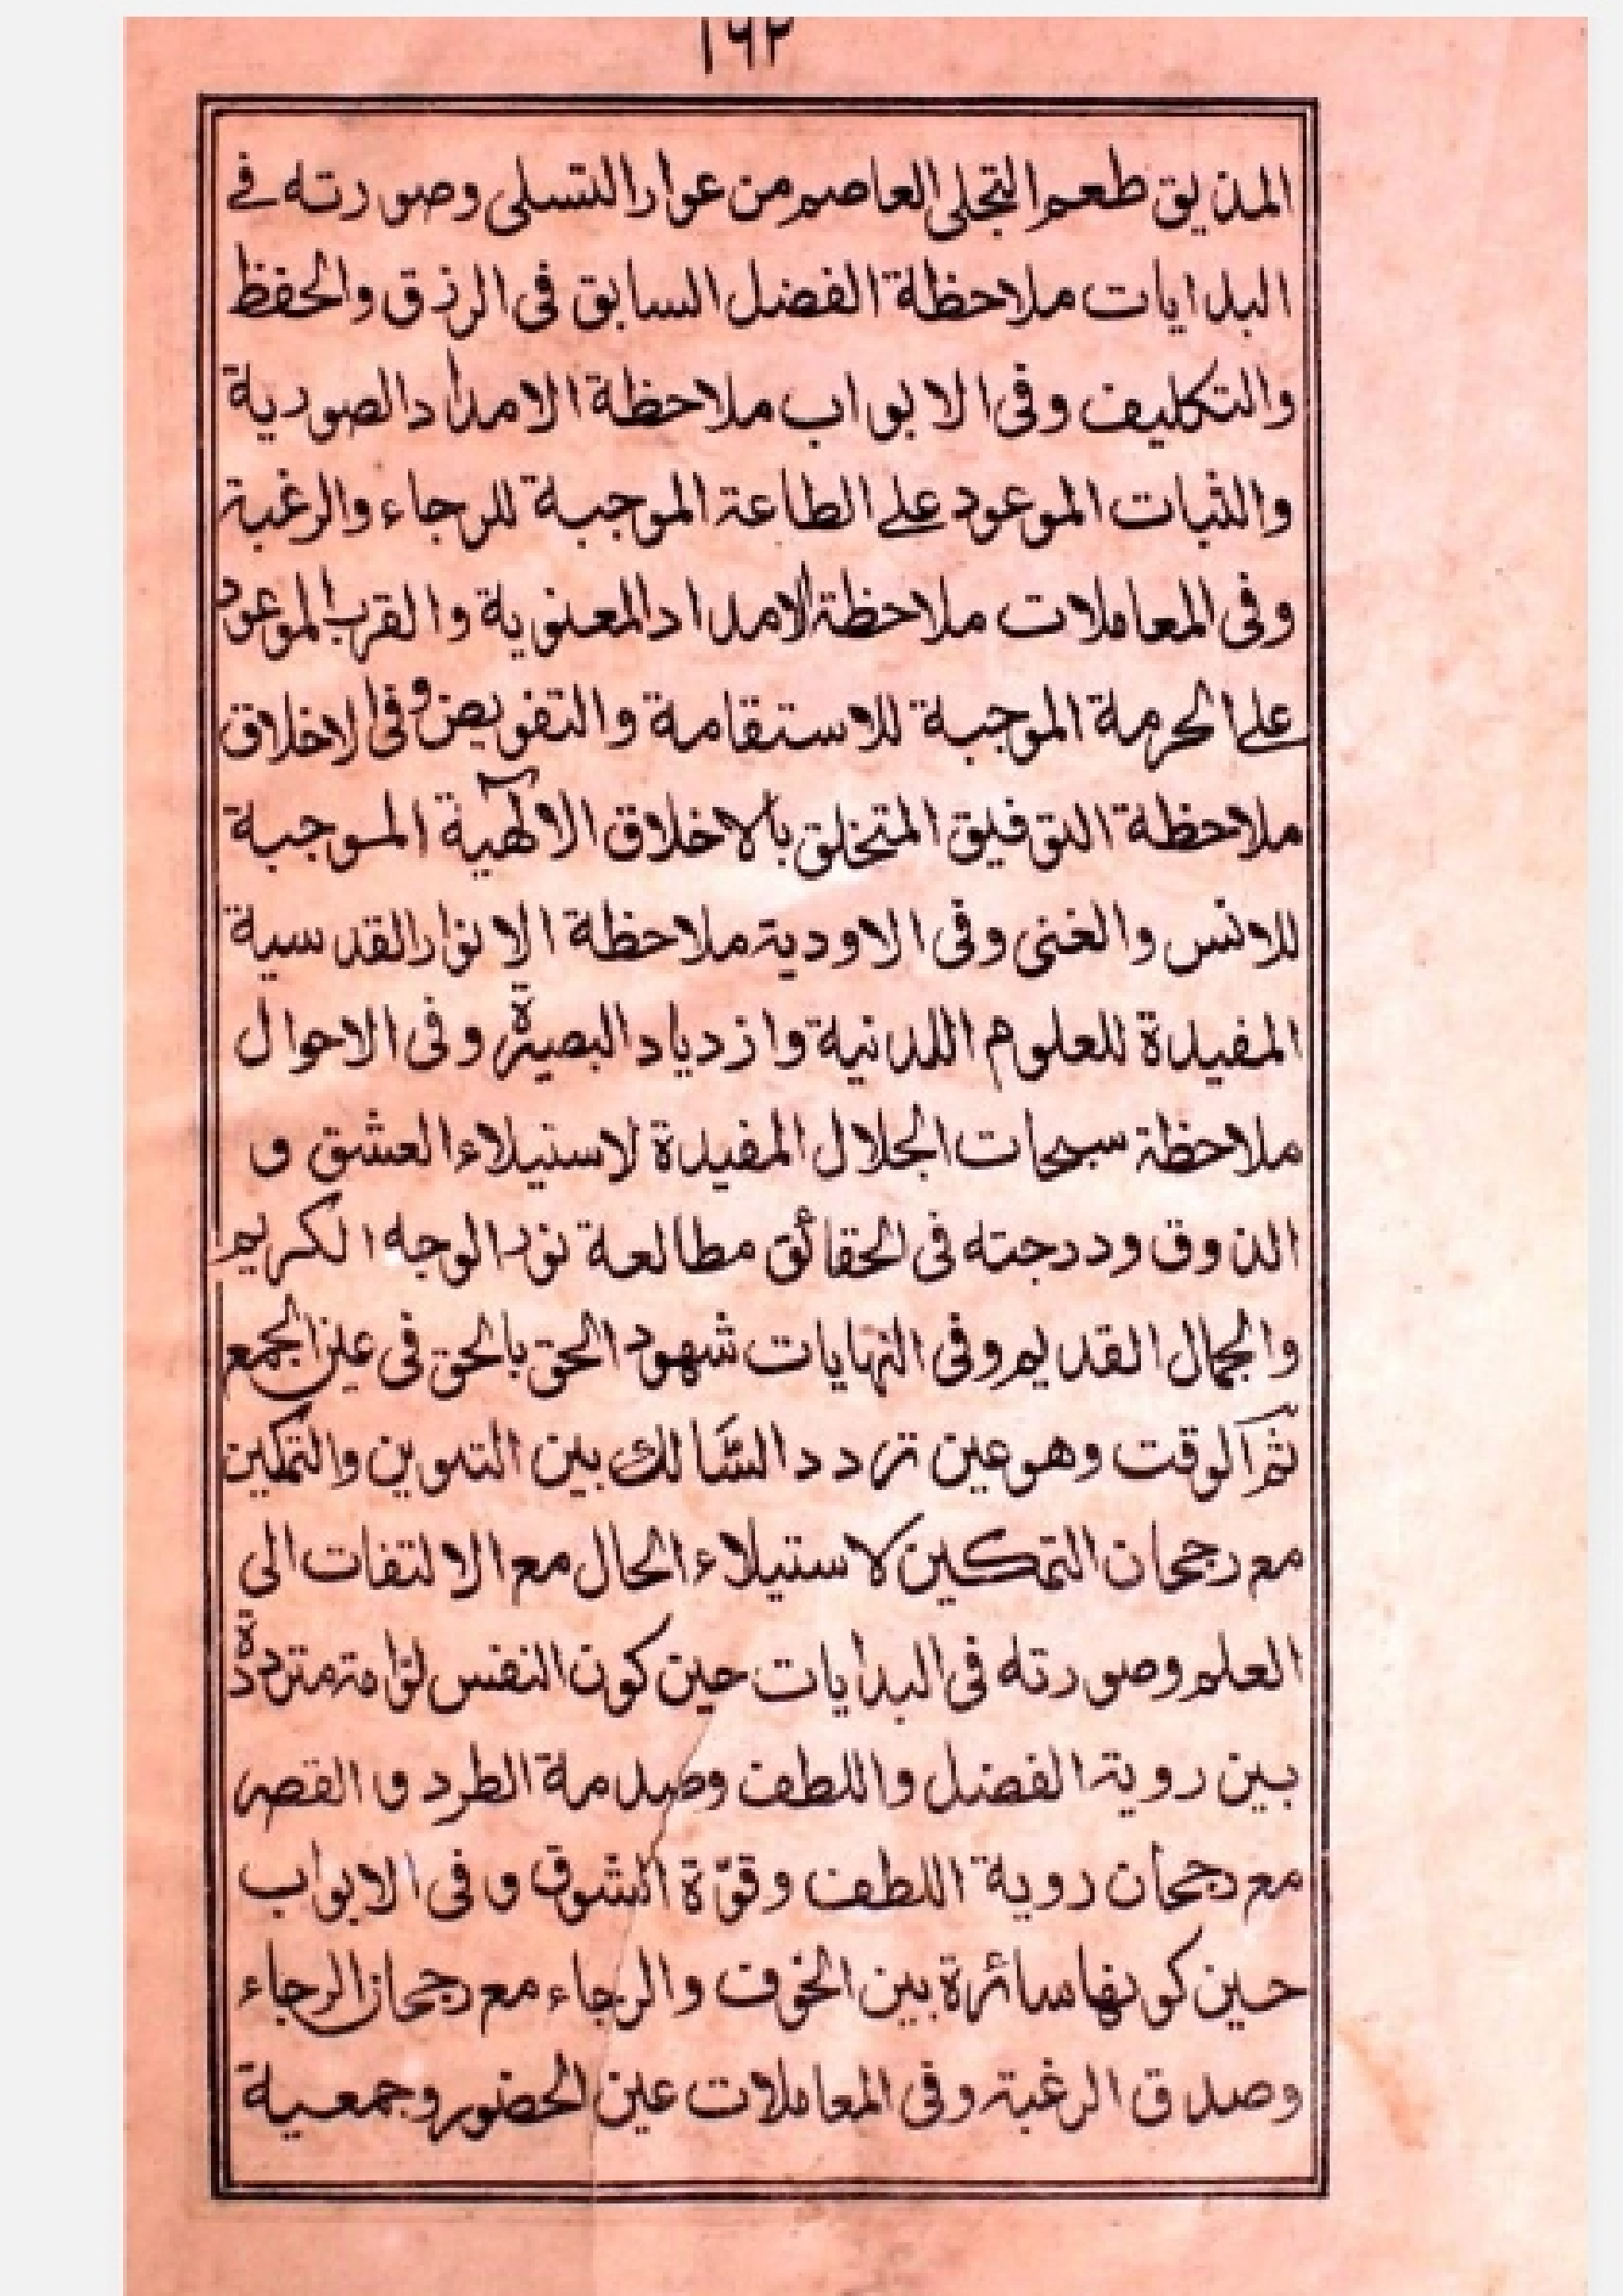 ١٦٢
المذيق طعم التجلى العاصم من عوار التسلى وصورته فے
البدايات ملاحظة الفضل السابق فى الرزق والحفظ
والتكليف وفى الابواب ملاحظة الامداد الصورية
والثبات الموعود علے الطاعة الموجبة للرجاء والرغبة
وفى المعاملات ملاحظة الامداد المعنوية والقرب الموعود
علے الحرمة الموجبة للاستقامة والتفويض وفى الاخلاق
ملاحظة التوفيق المتخلق بالاخلاق الالٓهية الموجبة
للانس والغنى وفى الاودية ملاحظة الانوار القدسية
المفيدة للعلوم اللدنية وازدياد البصيرة وفى الاحوال
ملاحظة سبحات الجلال المفيدة لاستيلاء العشق و
الذوق ودرجته فى الحقائق مطالعة نور الوجه الكريم
والجمال القديم وفى النهايات شهود الحق بالحق فى عين الجمع
ثم الوقت وهو عين تردد السَّالك بين التلوين والتمكين
مع رجحان التمكين لاستيلاء الحال مع الالتفات الى
العلم وصورته فى البدايات حين كون النفس لوّامة مترددة
بين روية الفضل واللطف وصدمة الطرد و القصر
مع رجحان روية اللطف وقوّة الشوق و فى الابواب
حين كونها سائرة بين الخوف والرجاء مع رجحان الرجاء
وصدق الرغبة وفى المعاملات عين الحضور وجمعية